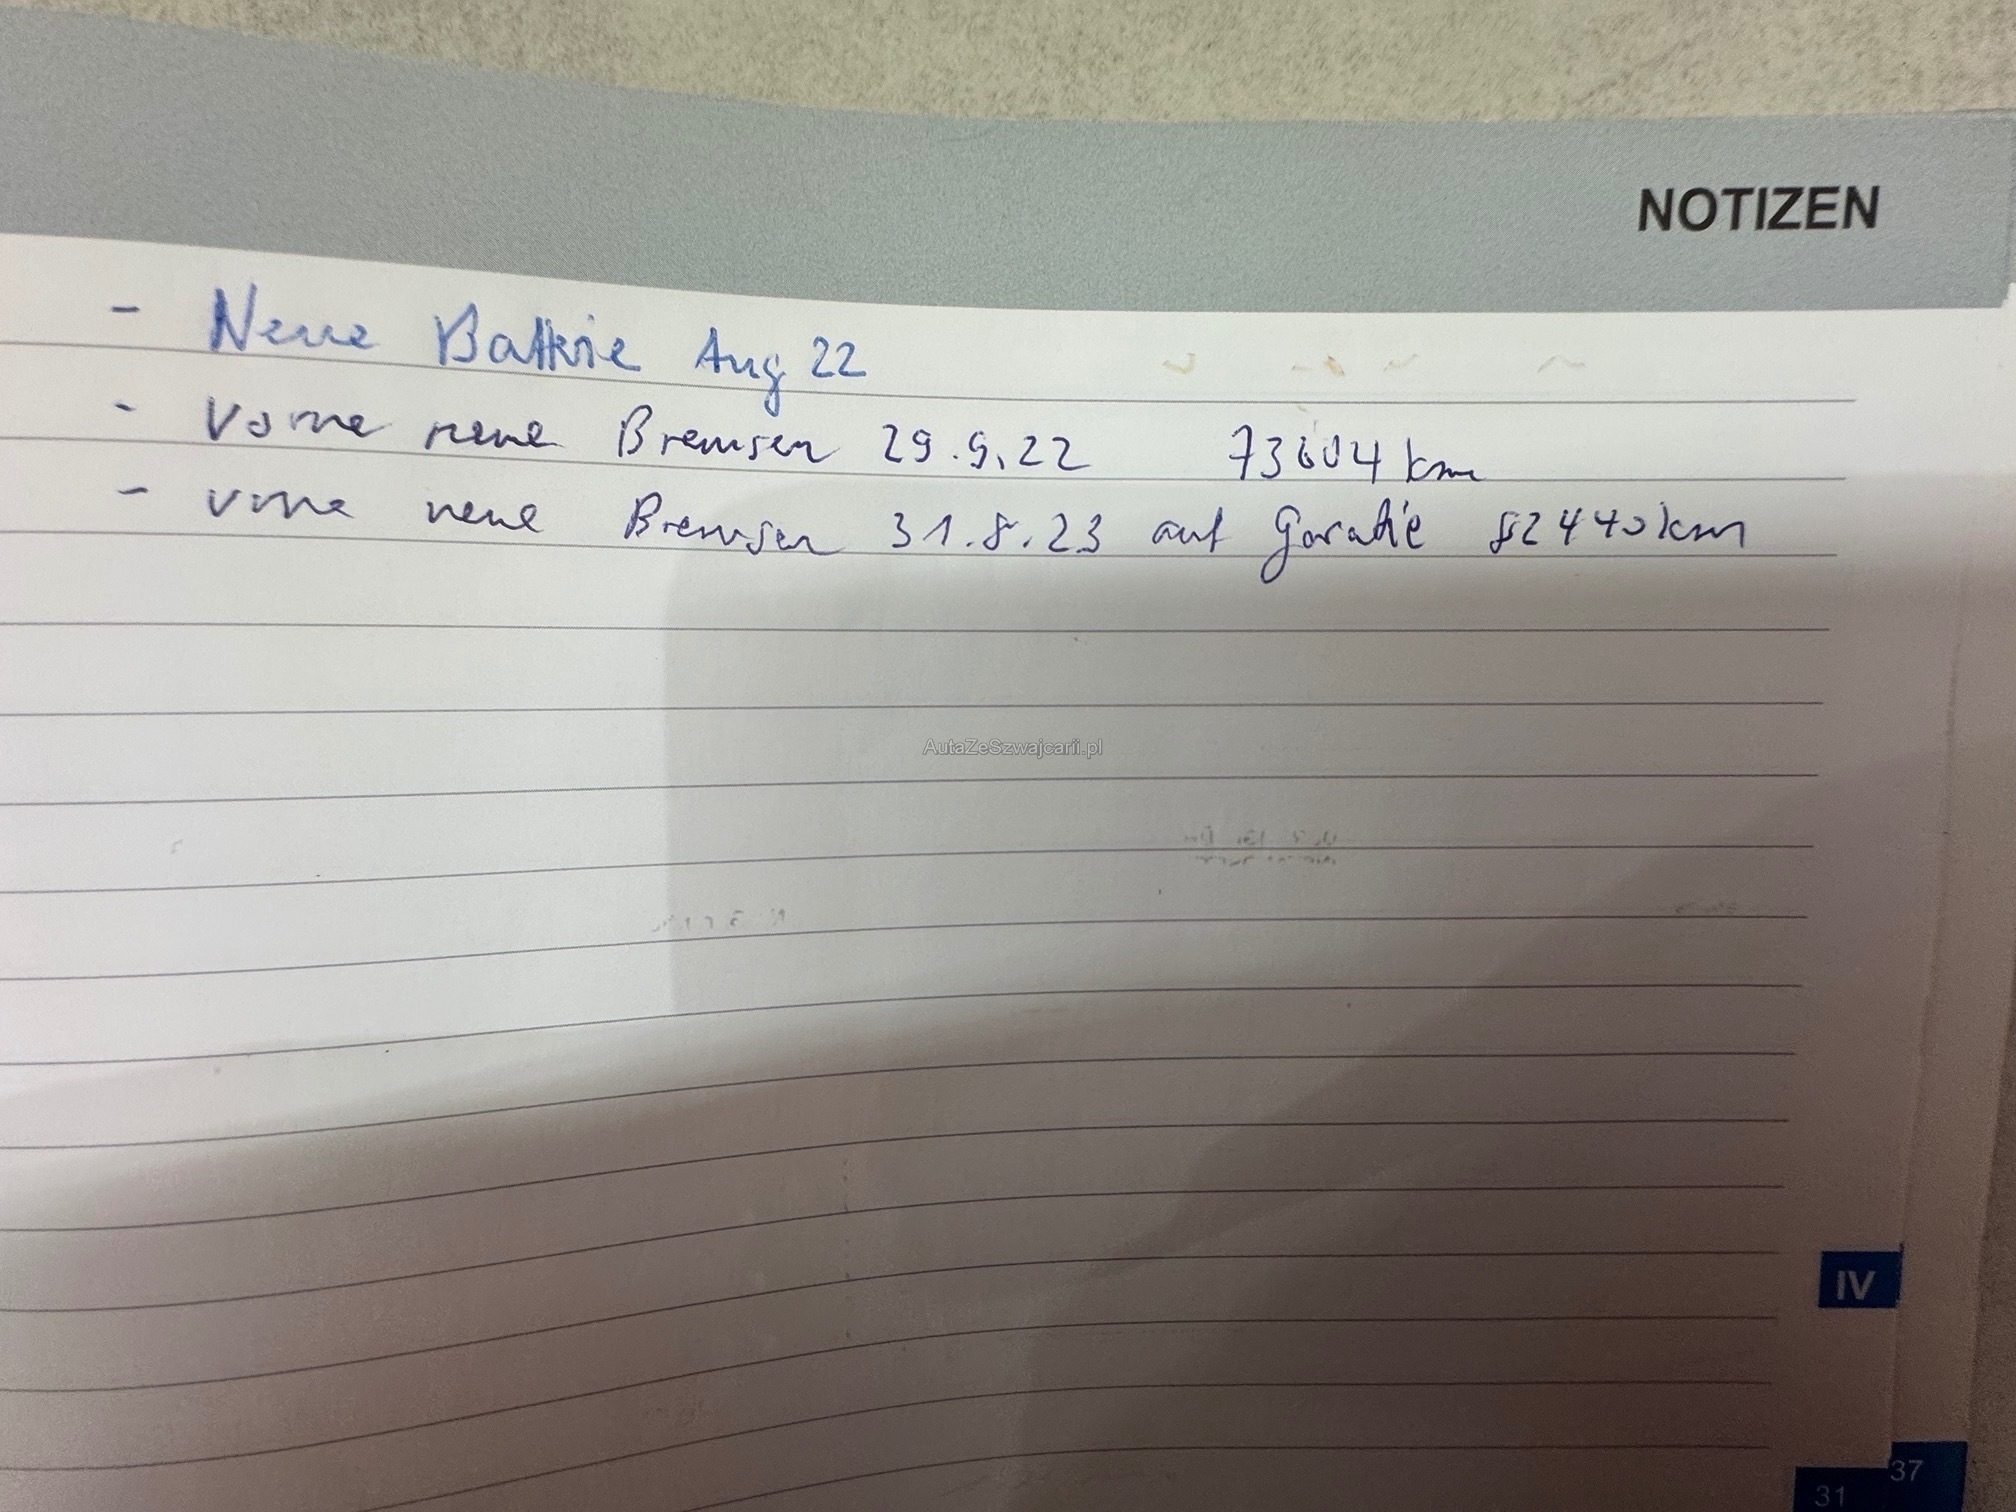 NOTIZEN
- Neue Batterie Aug 22
- Vorne neue Bremsen 29.9.22 73604 km
- vorne neue Bremsen 31.8.23 auf Garatie 82440 km
AutaZeSzwajcarii.pl
IV
37
31